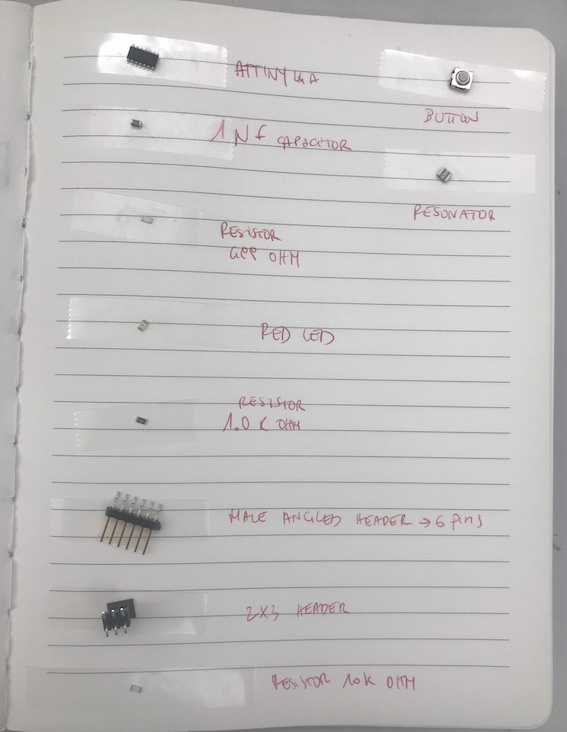 ATTINY44A
BUTTON
1 NF CAPACITOR
RESONATOR
RESISTOR
499 OHM
RED LED
RESISTOR
1.0 K OHM
MALE ANGLED HEADER → 6 PINS
2X3 HEADER
RESISTOR 10K OHM